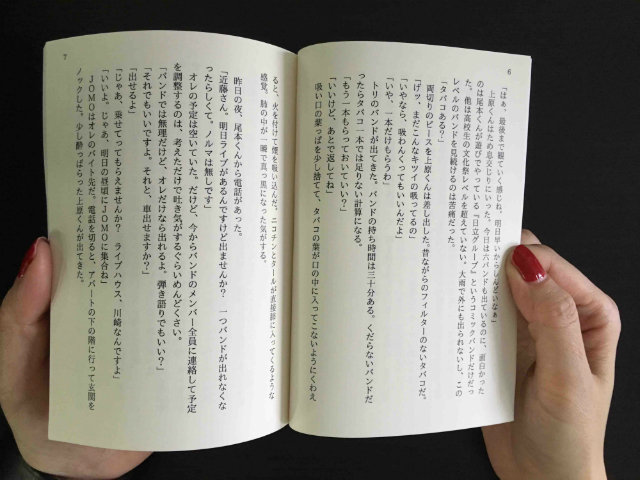 6
「はぁ、最後まで観ていく感じね、明日早いからしんどいなぁ」
上原くんはため息交じりにいった。今日は六バンドも出ているのに、面白かった
のは尾本くんが遊びでやっている『日立グループ』というコミックバンドだけだっ
た。他は高校生の文化祭レベルを超えていない。大雨で外にも出られないし、この
レベルのバンドを見続けるのは苦痛だった。
「タバコある?」
両切りのピースを上原くんは差し出した。昔ながらのフィルターのないタバコだ。
「げッ、まだこんなキツイの吸ってるの」
「いやなら、吸わんくってもいいんだよ」
「いや、一本だけもらうわ」
トリのバンドが出てきた。バンドの持ち時間は三十分ある。くだらないバンドだ
ったらタバコ一本では足りない計算になる。
「もう一本もらっておいていい?」
「いいけど、あとで返してね」
吸い口の葉っぱを少し捨てて、タバコの葉が口の中に入ってこないようにくわえ
7
ると、火を付けて煙を吸い込んだ。ニコチンとタールが直接肺に入ってくるような
感覚。肺の中が一瞬で真っ黒になった気がする。
昨日の夜、尾本くんから電話があった。
「近藤さん。明日ライブがあるんですけど出ませんか? 一つバンドが出れなくな
ったらしくて。ノルマは無しです」
オレの予定は空いていた。だけど、今からバンドのメンバー全員に連絡して予定
を調整するのは、考えただけで吐き気がするぐらいめんどくさい。
「バンドでは無理だけど、オレだけなら出れるよ。弾き語りでもいい?」
「それでもいいですよ。それと、車出せますか?」
「出せるよ」
「じゃあ、乗せてってもらえませんか? ライブハウス、川崎なんですよ」
「いいよ。じゃあ、明日の昼頃にJOMOに集合ね」
JOMOはオレのバイト先だ。電話を切ると、アパートの下の階に行って玄関を
ノックした。少し酔っぱらった上原くんが出てきた。